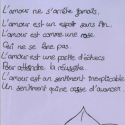 L'amour ne s'arrête jamais,
L'amour est un espoir sans fin.
L'amour est comme une rose
Qui ne se fane pas
L'amour est une partie d'échecs
Pour atteindre la réussite
L'amour est un sentiment inexplicable
Un sentiment qu'on cesse d'avancer.